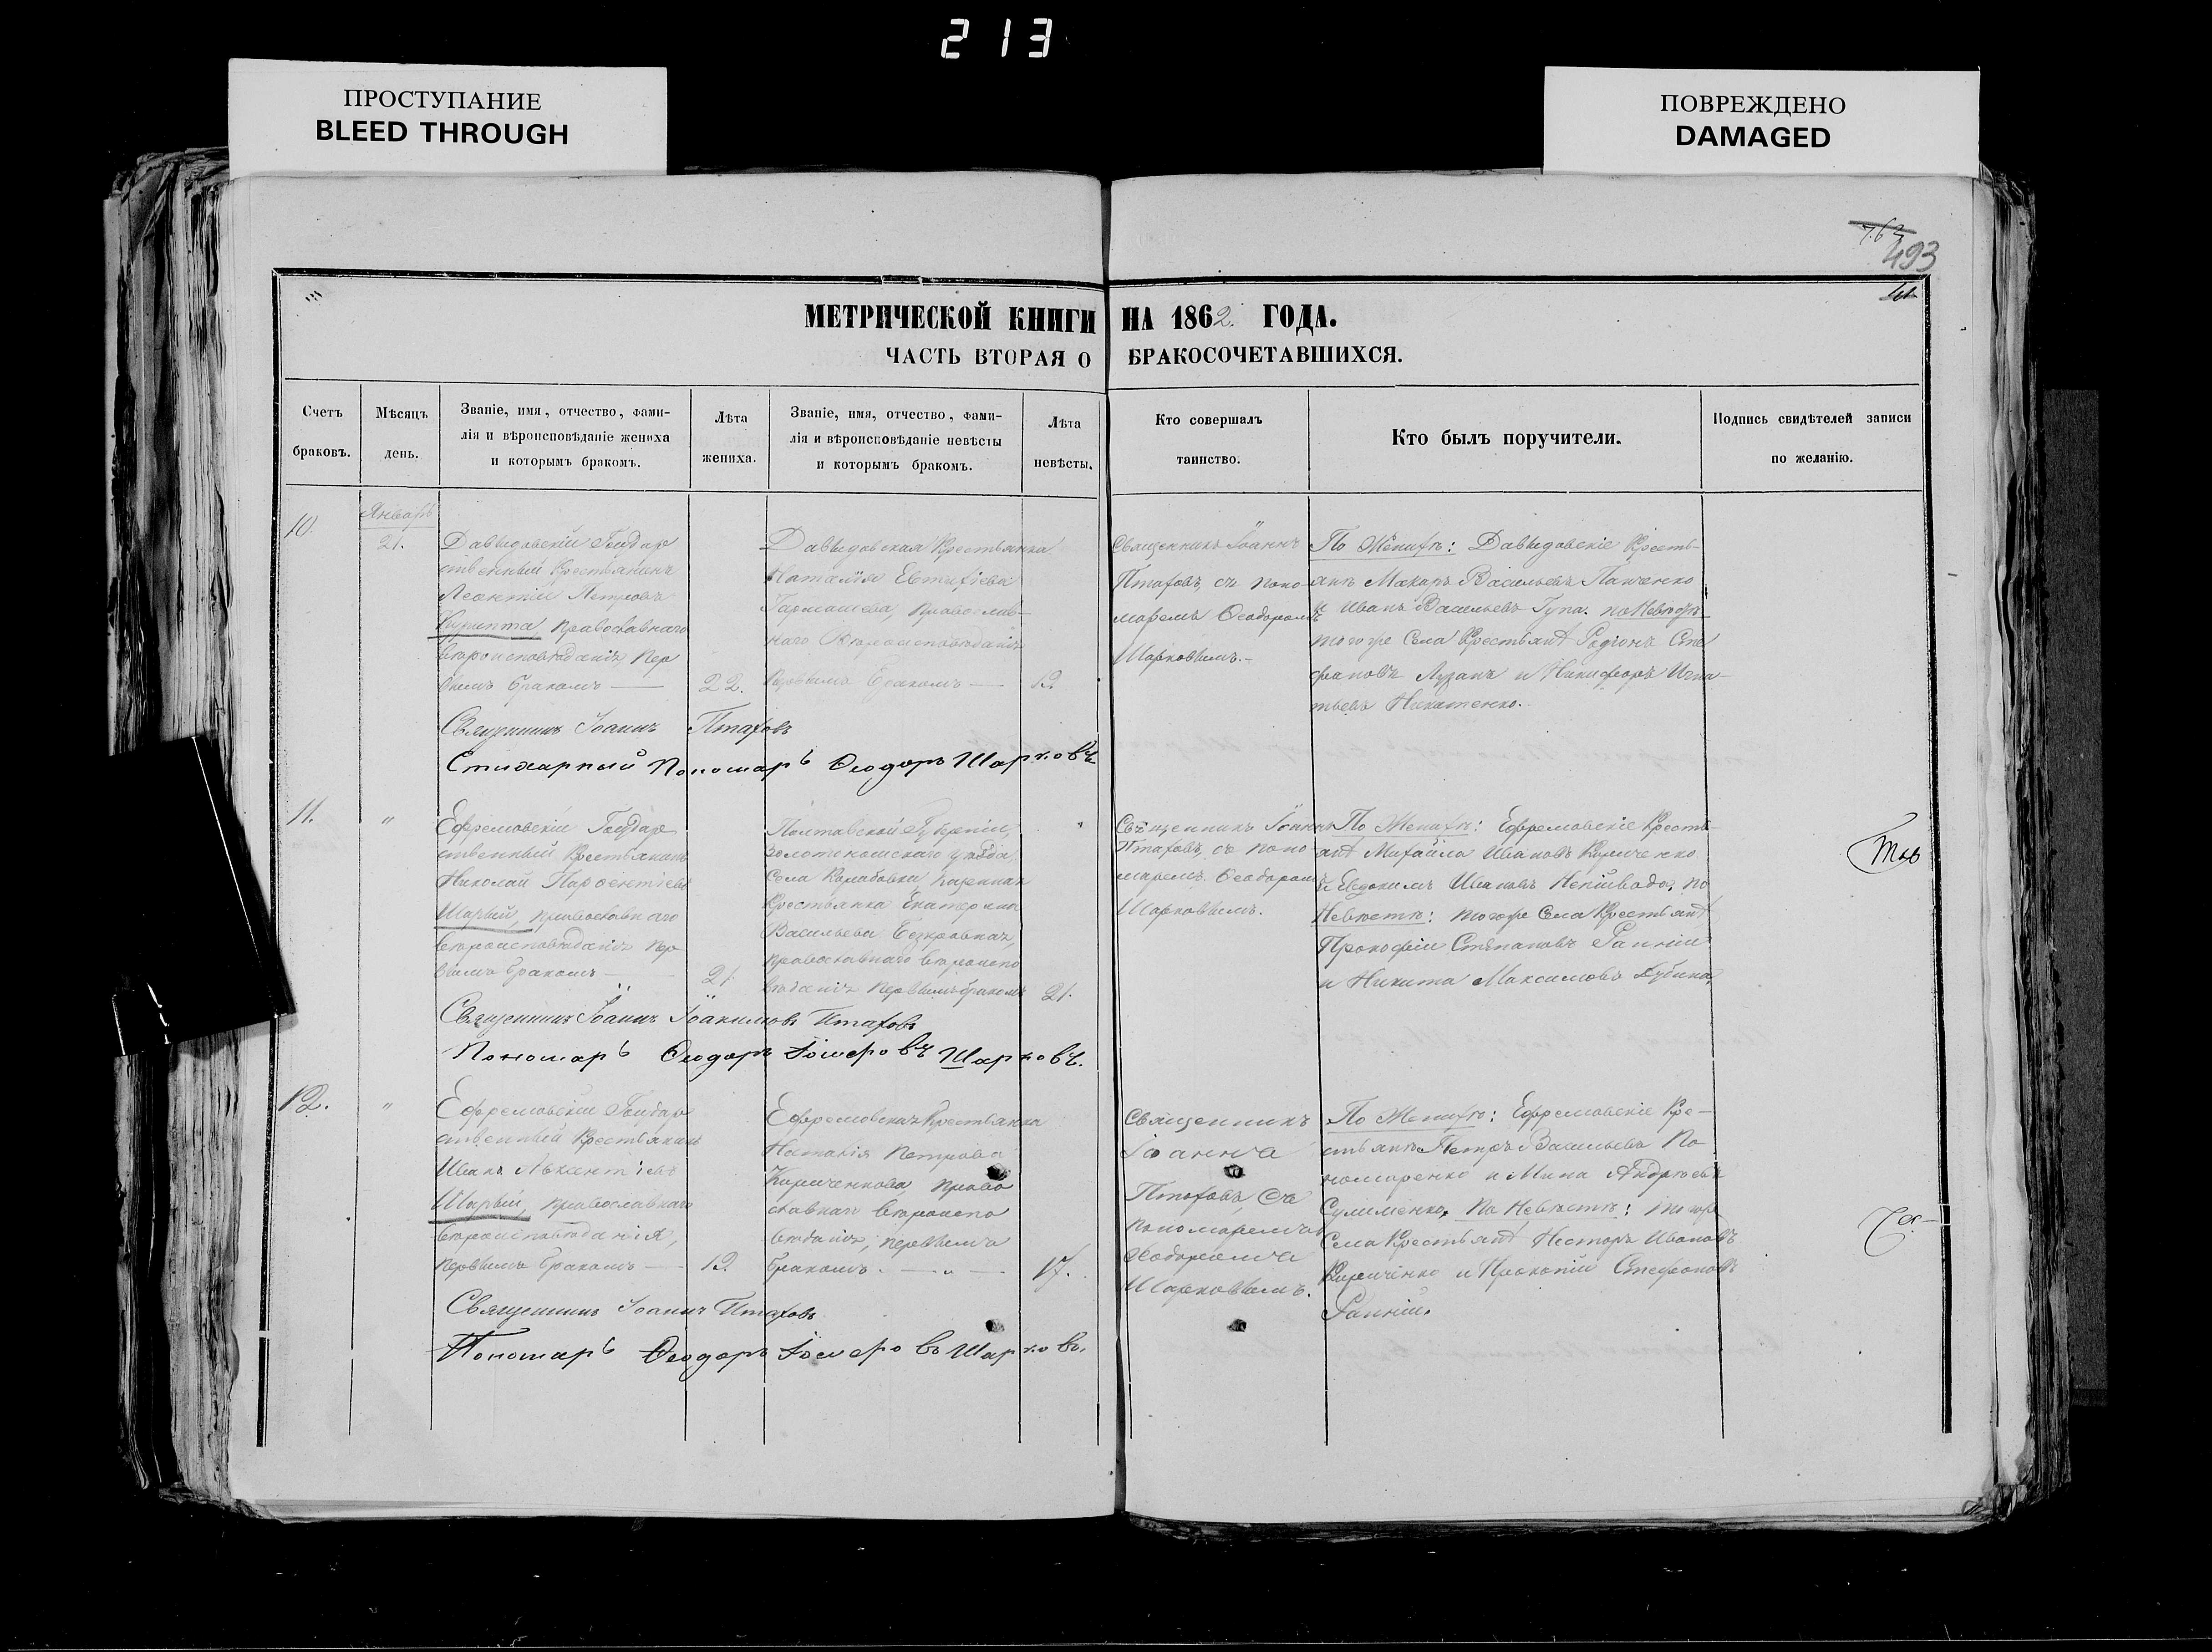 213
ПРОСТУПАНИЕ
BLEED THROUGH
ПОВРЕЖДЕНО
DAMAGED
493
МЕТРИЧЕСКОЙ КНИГИ НА 1862. ГОДА.
ЧАСТЬ ВТОРАЯ О БРАКОСОЧЕТАВШИХСЯ.
Счетъ браковъ.
Мѣсяцъ день.
Званіе, имя, отчество, фами-
лія и вѣроисповѣданіе жениха
и которымъ бракомъ.
Лѣта жениха.
Званіе, имя, отчество, фами-
лія и вѣроисповѣданіе невѣсты
и которымъ бракомъ.
Лѣта невѣсты.
Кто совершалъ таинство.
Кто былъ поручители.
Подпись свидѣтелей записи
по желанію.
10.
Январь
21.
Давыдовскій Государ
ственный Крестьянинъ
Леонтій Петровъ
православнаго
вѣроисповѣданія, пер
вымъ бракомъ —
22.
Давыдовская Крестьянка
Наталія Евтифіева
Гармашева, православ-
наго вѣроисповѣданія
первымъ бракомъ —
19.
Священникъ Іоаннъ
Птаховъ, съ поно-
маремъ Ѳеодоромъ
Шарковымъ.
По Женихѣ: Давыдовскіе Кресть-
яне Макаръ Васильевъ Панченко
и Иванъ Васильевъ Гупа. по Невѣстѣ
тогоже Села Крестьяне Родіонъ Сте
фановъ Лузанъ и Никифоръ Игна-
тьевъ
Священникъ Іоаннъ Птаховъ
Стихарный Пономарь Ѳеодоръ Шарковъ
11.
"
Ефремовскій Государ
ственный Крестьянинъ
Николай Парѳентіевъ
Шарый, православнаго
вѣроисповѣданія пер
вымъ бракомъ —
21.
Полтавской Губерніи,
Золотоношскаго уѣзда,
Села казенная
Крестьянка Екатерина
Васильева Безкровная,
православнаго вѣроиспо
вѣданія первымъ бракомъ
21.
Священникъ Іоаннъ
Птаховъ, съ поно
маремъ Ѳеодоромъ
Шарковымъ.
По Женихѣ: Ефремовскіе Кресть-
яне Михайло Ивановъ Кириченко
и Евдокимъ Ивановъ Непійвода, по
Невѣстѣ: тогоже Села Крестьяне
Прокофій Степановъ Ранній
и Никита Максимовъ Дубина,
Священникъ Іоаннъ Іоакимовъ Птаховъ
Пономарь Ѳеодоръ Шарковъ.
12.
"
Ефремовскій Государ
ственный Крестьянинъ
Иванъ Авксентіевъ
Шарый, православнаго
вѣроисповѣданія,
первымъ бракомъ —
19.
Ефремовская Крестьянка
Петрова
Кириченкова, право
славнаго вѣроиспо
вѣданія, первымъ
бракомъ. — " —
17.
Священникъ
Іоаннъ
Птаховъ, съ
пономаремъ
Ѳеодоромъ
Шарковымъ.
По Женихѣ: Ефремовскіе Кре-
стьяне Петръ Васильевъ По
номаренко и Мина Андреевъ
Сулименко, По Невѣстѣ: тогоже
Села Крестьяне Несторъ Ивановъ
Кириченко и Прокопій Стефановъ
Ранній.
Священникъ Іоаннъ Птаховъ
Пономарь Ѳеодоръ Шарковъ.